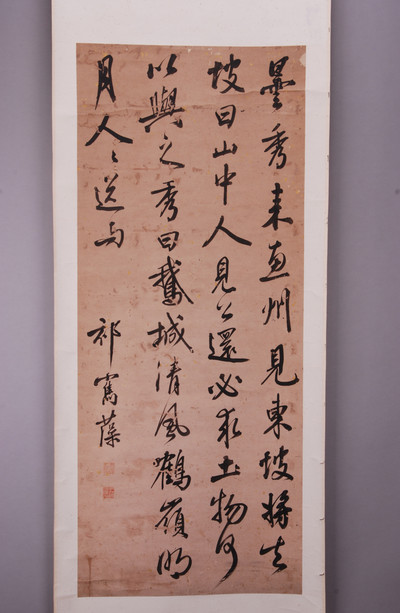 曇秀来惠州見東坡將去
坡曰山中人見公還必求土物何
以與之秀曰鵞城清風鶴嶺明
月人〻送与
祁寯藻